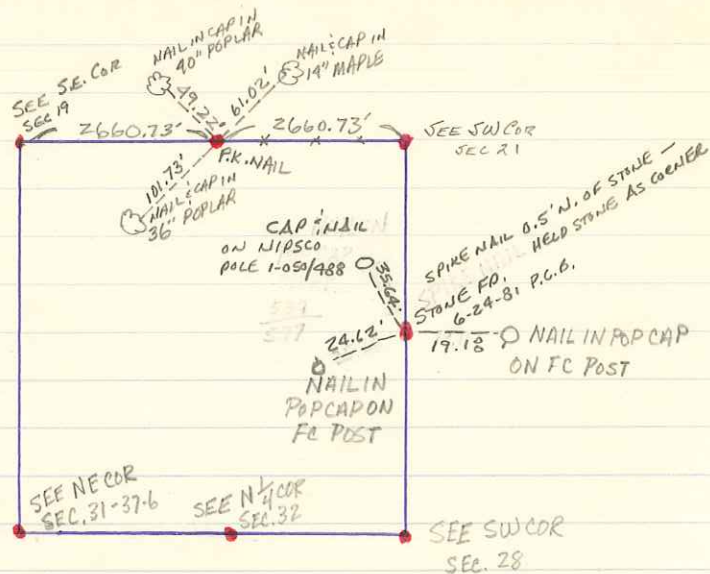 NAIL IN CAP IN
40" POPLAR
49.22'
NAIL & CAP IN
14" MAPLE
61.02'
SEE S.E. COR
SEC 19
2660.73'
2660.73'
SEE SW COR
SEC 21
P.K. NAIL
101.73'
NAIL & CAP IN
36" POPLAR
CAP & NAIL
ON NIPSCO
POLE 1-050/488
35.64'
SPIKE NAIL 0.5' N. OF STONE —
STONE FD. HELD STONE AS CORNER
6-24-81 P.G.B.
24.62'
19.18
NAIL IN POP CAP
ON FC POST
NAIL IN
POPCAP ON
FC POST
SEE NE COR
SEC. 31-37-6
SEE N 1/4 COR
SEC. 32
SEE SW COR
SEC. 28